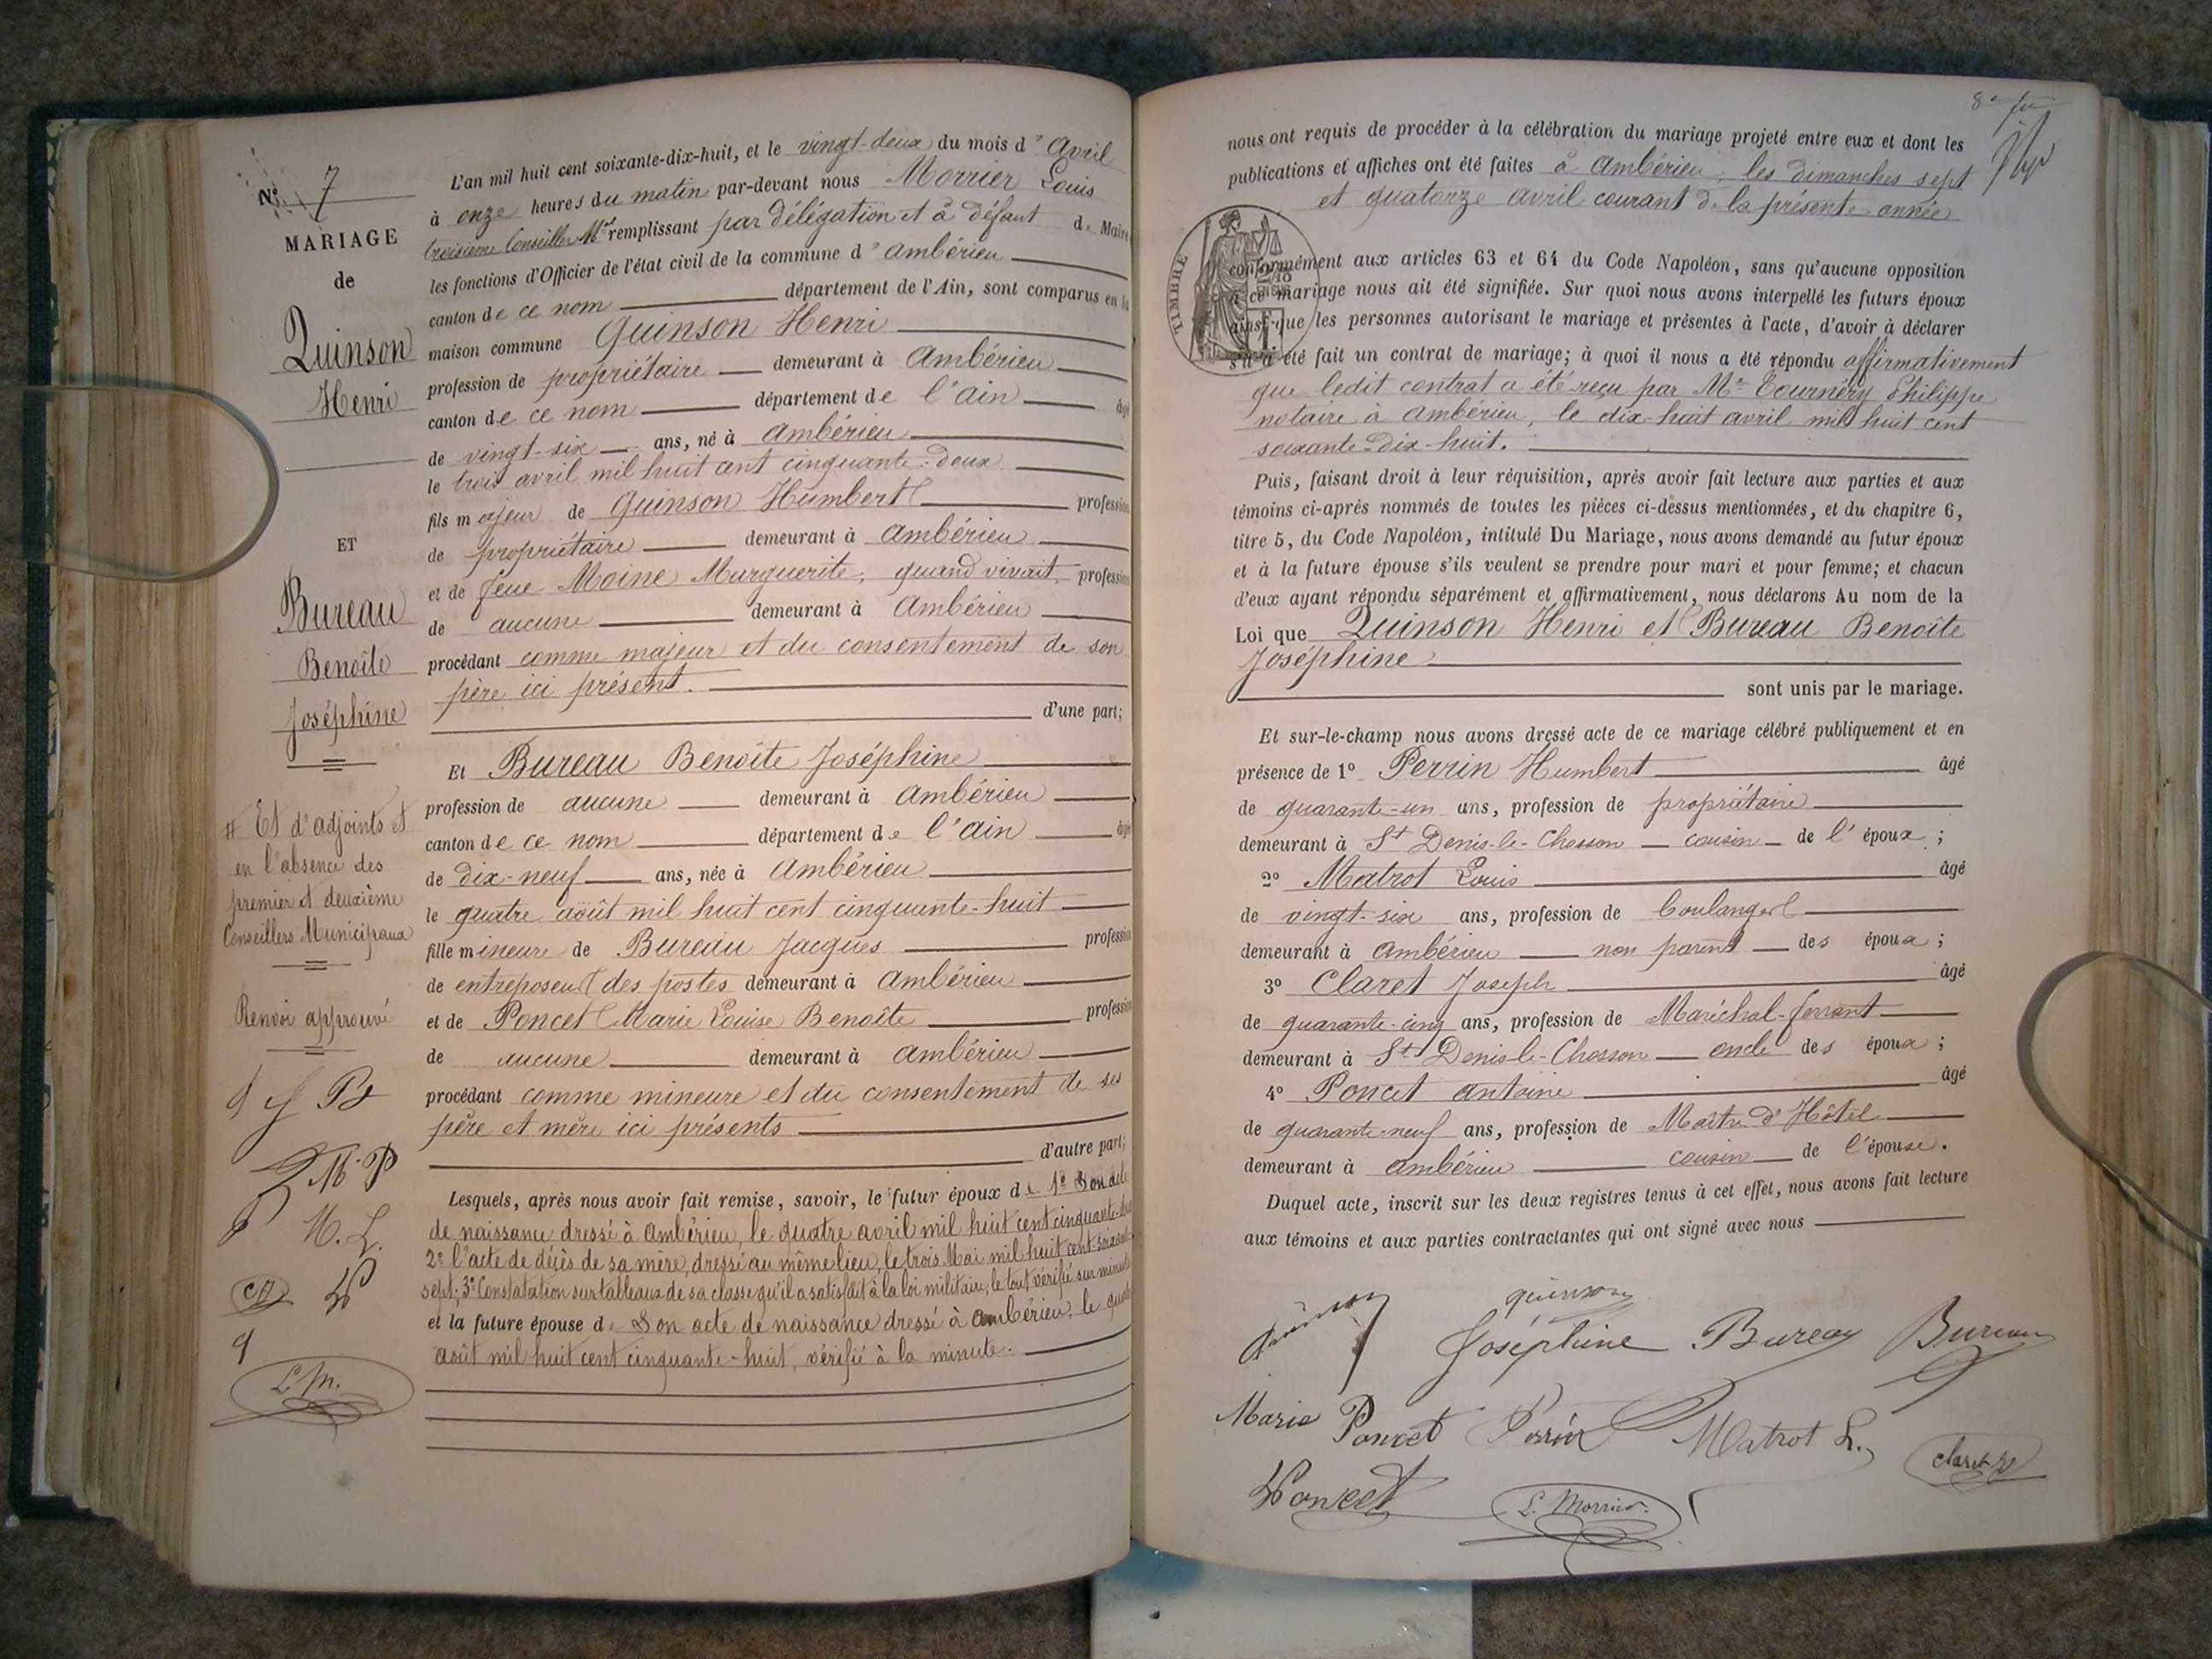 N° 7
MARIAGE
de
Quinson
Henri
ET
Bureau
Benoîte
Joséphine
# Et d'adjoints et
en l'absence des
premier et deuxième
Conseillers Municipaux
Renvoi approuvé
M. P
M. L.
L. M.
L'an mil huit cent soixante-dix-huit, et le vingt-deux du mois d'Avril
à onze heures du matin par-devant nous Morrier Louis
troisième Conseiller Mal remplissant par délégation et à défaut de Maire
les fonctions d'Officier de l'état civil de la commune d'Ambérieu
canton de ce nom département de l'Ain, sont comparus en la
maison commune Quinson Henri
profession de propriétaire demeurant à Ambérieu
canton de ce nom département de l'Ain âgé
de vingt-six ans, né à Ambérieu
le trois avril mil huit cent cinquante-deux
fils majeur de Quinson Humbert profession
de propriétaire demeurant à Ambérieu
et de feue Moine Marguerite, quand vivait, profession
de aucune demeurant à Ambérieu
procédant comme majeur et du consentement de son
père ici présent.
d'une part;
Et Bureau Benoîte Joséphine
profession de aucune demeurant à Ambérieu
canton de ce nom département de l'Ain âgé
de dix-neuf ans, née à Ambérieu
le quatre août mil huit cent cinquante-huit
fille mineure de Bureau Jacques profession
de entreposeur des postes demeurant à Ambérieu
et de Poncet Marie Louise Benoîte profession
de aucune demeurant à Ambérieu
procédant comme mineure et du consentement de ses
père et mère ici présents
d'autre part;
Lesquels, après nous avoir fait remise, savoir, le futur époux de 1° Son acte
de naissance dressé à Ambérieu, le quatre avril mil huit cent cinquante-deux
2° l'acte de décès de sa mère, dressé au même lieu, le trois Mai mil huit cent soixante
sept; 3° Constatation sur tableaux de sa classe qu'il a satisfait à la loi militaire; le tout vérifié sur minute
et la future épouse de Son acte de naissance dressé à Ambérieu, le quatre
août mil huit cent cinquante-huit, vérifié à la minute.
nous ont requis de procéder à la célébration du mariage projeté entre eux et dont les
publications et affiches ont été faites à Ambérieu, les dimanches sept
et quatorze avril courant de la présente année
TIMBRE
conformément aux articles 63 et 64 du Code Napoléon, sans qu'aucune opposition
à ce mariage nous ait été signifiée. Sur quoi nous avons interpellé les futurs époux
ainsi que les personnes autorisant le mariage et présentes à l'acte, d'avoir à déclarer
s'il a été fait un contrat de mariage; à quoi il nous a été répondu affirmativement
que ledit contrat a été reçu par Me Tournéry Philippe
notaire à Ambérieu, le dix-huit avril mil huit cent
soixante-dix-huit.
Puis, faisant droit à leur réquisition, après avoir fait lecture aux parties et aux
témoins ci-après nommés de toutes les pièces ci-dessus mentionnées, et du chapitre 6,
titre 5, du Code Napoléon, intitulé Du Mariage, nous avons demandé au futur époux
et à la future épouse s'ils veulent se prendre pour mari et pour femme; et chacun
d'eux ayant répondu séparément et affirmativement, nous déclarons Au nom de la
Loi que Quinson Henri et Bureau Benoîte
Joséphine
sont unis par le mariage.
Et sur-le-champ nous avons dressé acte de ce mariage célébré publiquement et en
présence de 1° Perrin Humbert âgé
de quarante-un ans, profession de propriétaire
demeurant à St Denis-le-Chosson cousin de l'époux;
2° Matrot Louis âgé
de vingt-six ans, profession de boulanger
demeurant à Ambérieu non parent des époux;
3° Claret Joseph âgé
de quarante-cinq ans, profession de Maréchal-ferrant
demeurant à St Denis-le-Chosson oncle des époux;
4° Poncet Antoine âgé
de quarante-neuf ans, profession de Maître d'Hôtel
demeurant à Ambérieu cousin de l'épouse.
Duquel acte, inscrit sur les deux registres tenus à cet effet, nous avons fait lecture
aux témoins et aux parties contractantes qui ont signé avec nous
quinson
Joséphine Bureau Bureau
Marie Poncet Perrin Matrot L. Claret
Poncet L. Morrier.